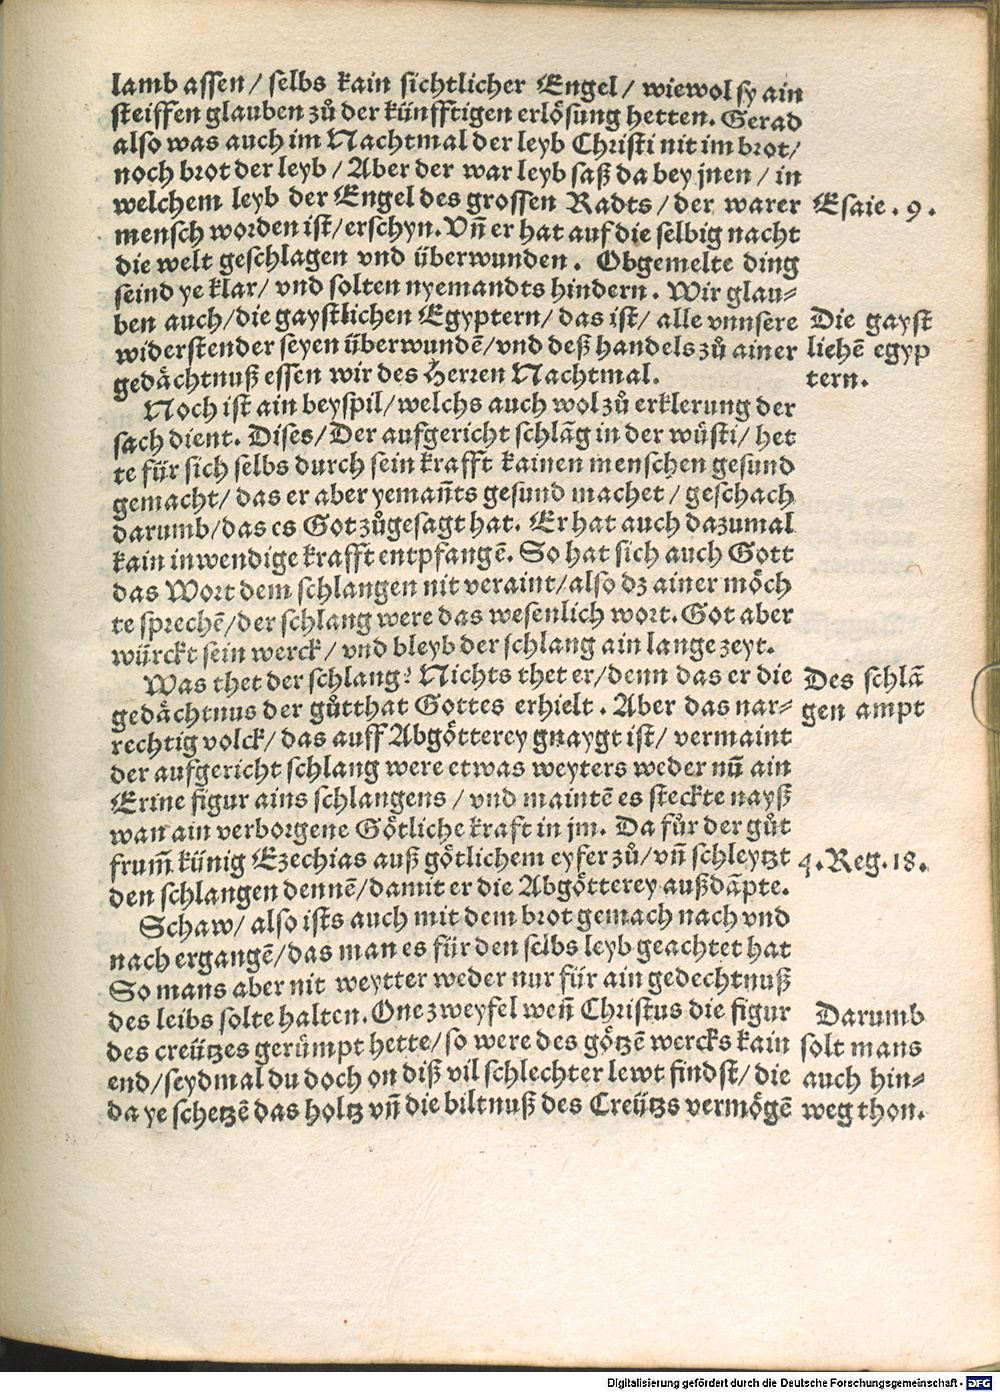 lamb assen / selbs kain sichtlicher Engel / wiewol sy ain
steiffen glauben zů der künfftigen erlösung hetten. Gerad
also was auch im Nachtmal der leyb Christi nit im brot/
noch brot der leyb / Aber der war leyb saß da bey jnen / in
welchem leyb der Engel des grossen Radts / der warer
Esaie . 9 .
mensch worden ist/erschyn. Vñ er hat auf die selbig nacht
die welt geschlagen vnd überwunden . Obgemelte ding
seind ye klar/ vnd solten nyemandts hindern . Wir glau-
ben auch/die gaystlichen Egyptern/ das ist/ alle vnnsere
widerstender seyen überwundē/vnd deß handels zů ainer
gedächtnuß essen wir des Herren Nachtmal.
Die gayst
lichē egyp
tern.
Noch ist ain beyspil/welchs auch wol zů erklerung der
sach dient. Dises/Der aufgericht schlãg in der wüsti/ het
te für sich selbs durch sein krafft kainen menschen gesund
gemacht/ das er aber yemañts gesund machet / geschach
darumb/das es Got zůgesagt hat. Er hat auch dazumal
kain inwendige krafft entpfangē. So hat sich auch Gott
das Wort dem schlangen nit veraint/also dz ainer möch
te sprechē/der schlang were das wesenlich wort. Got aber
würckt sein werck / vnd bleyb der schlang ain lange zeyt.
Was thet der schlang? Nichts thet er/denn das er die
gedächtnus der gůtthat Gottes erhielt . Aber das nar-
rechtig volck/ das auff Abgötterey gnaygt ist/ vermaint
der aufgericht schlang were etwas weyters weder nū ain
Erine figur ains schlangens / vnd maintē es steckte nayß
wan ain verborgene Götliche kraft in jm. Da fůr der gůt
frum̃ künig Ezechias auß götlichem eyfer zů/vñ schleytzt
den schlangen dennē/damit er die Abgötterey außdãpte.
Des schlã
gen ampt
4. Reg. 18 .
Schaw/ also ists auch mit dem brot gemach nach vnd
nach ergangē/das man es für den selbs leyb geachtet hat
So mans aber nit weytter weder nur für ain gedechtnuß
des leibs solte halten. One zweyfel weñ Christus die figur
des creützes gerümpt hette/so were des götzē wercks kain
end/seydmal du doch on diß vil schlechter lewt findst/ die
da ye schetzē das holtz vñ die biltnuß des Creützs vermögē
Darumb
solt mans
auch hin-
weg thon.
Digitalisierung gefördert durch die Deutsche Forschungsgemeinschaft - DFG